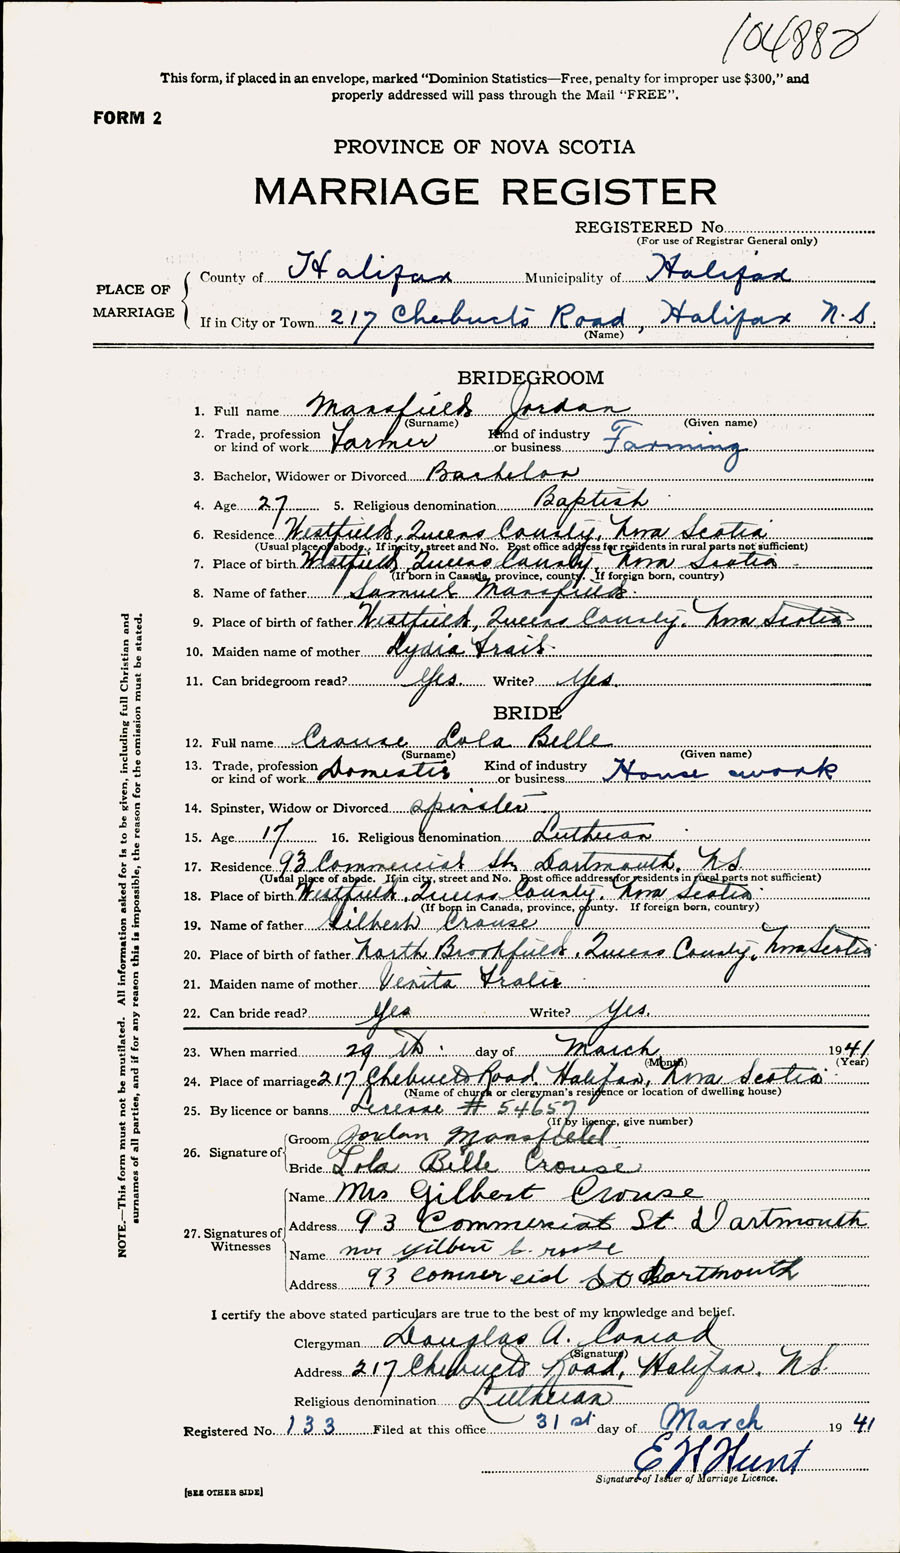 104882
This form, if placed in an envelope, marked "Dominion Statistics—Free, penalty for improper use $300," and
properly addressed will pass through the Mail "FREE".
FORM 2
PROVINCE OF NOVA SCOTIA
MARRIAGE REGISTER
REGISTERED No.
(For use of Registrar General only)
PLACE OF MARRIAGE
County of Halifax Municipality of Halifax
If in City or Town 217 Chebucto Road, Halifax N.S.
(Name)
BRIDEGROOM
1. Full name Mansfield Jordan
(Surname) (Given name)
2. Trade, profession or kind of work Farmer Kind of industry or business Farming
3. Bachelor, Widower or Divorced Bachelor
4. Age 27 5. Religious denomination Baptist
6. Residence Westfield, Queens County, Nova Scotia
(Usual place of abode. If in city, street and No. Post office address for residents in rural parts not sufficient)
7. Place of birth Westfield, Queens County, Nova Scotia
(If born in Canada, province, county. If foreign born, country)
8. Name of father Samuel Mansfield
9. Place of birth of father Westfield, Queens County, Nova Scotia
10. Maiden name of mother Lydia
11. Can bridegroom read? Yes. Write? Yes.
BRIDE
12. Full name Crouse Lola Belle
(Surname) (Given name)
13. Trade, profession or kind of work Domestic Kind of industry or business House work
14. Spinster, Widow or Divorced spinster
15. Age 17 16. Religious denomination Lutheran
17. Residence 93 Commercial St, Dartmouth, NS
(Usual place of abode. If in city, street and No. Post office address for residents in rural parts not sufficient)
18. Place of birth Westfield, Queens County, Nova Scotia
(If born in Canada, province, county. If foreign born, country)
19. Name of father Gilbert Crouse
20. Place of birth of father North Brookfield, Queens County, Nova Scotia
21. Maiden name of mother Venita
22. Can bride read? Yes Write? Yes.
23. When married 29 th. day of March 1941
(Month) (Year)
24. Place of marriage 217 Chebucto Road, Halifax, Nova Scotia
(Name of church or clergyman's residence or location of dwelling house)
25. By licence or banns License # 54657
(If by licence, give number)
26. Signature of
Groom Jordan Mansfield
Bride Lola Belle Crouse
27. Signatures of Witnesses
Name Mrs Gilbert Crouse
Address 93 Commercial St. Dartmouth
Name Gilbert
Address 93 Commercial St Dartmouth
I certify the above stated particulars are true to the best of my knowledge and belief.
Clergyman Douglas A. Conrad
(Signature)
Address 217 Chebucto Road, Halifax, NS.
Religious denomination Lutheran
Registered No. 133 Filed at this office 31 st day of March 1941
E H Hunt
Signature of Issuer of Marriage Licence.
[SEE OTHER SIDE]
NOTE.—This form must not be mutilated. All information asked for is to be given, including full Christian and
surnames of all parties, and if for any reason this is impossible, the reason for the omission must be stated.